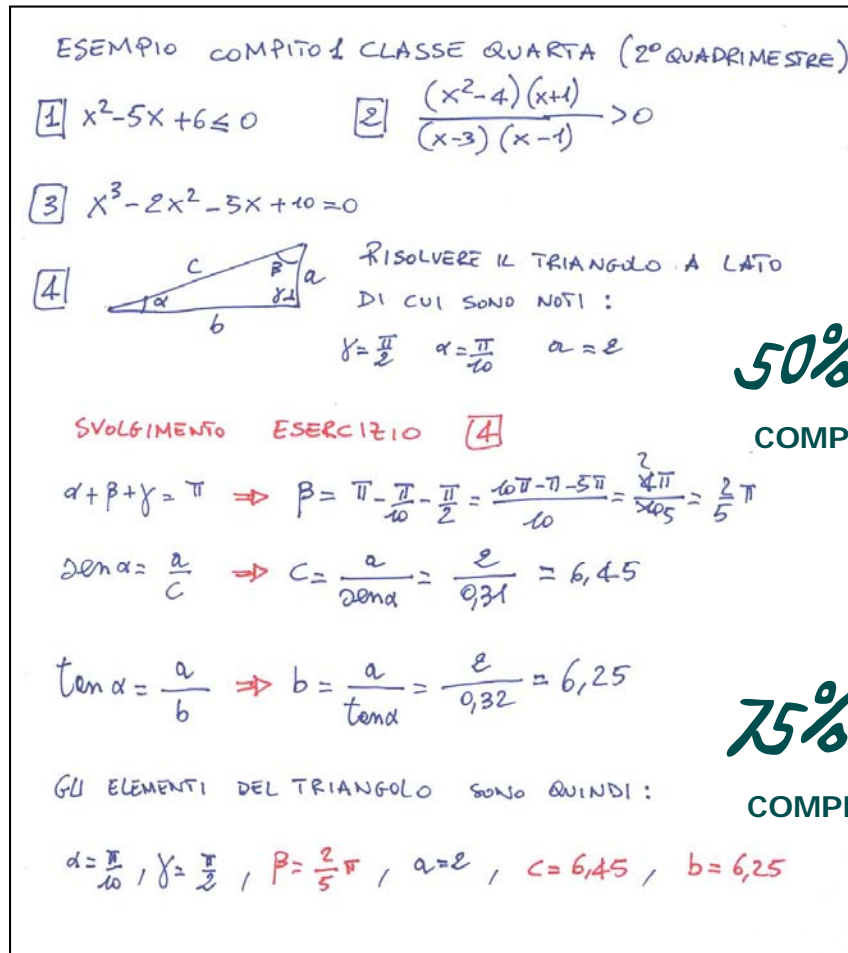 ESEMPIO COMPITO 1 CLASSE QUARTA (2° QUADRIMESTRE)
1 x²-5x+6≤0 2 (x²-4)(x+1)/(x-3)(x-1) >0
3 x³-2x²-5x+10=0
4 c β a α γ b RISOLVERE IL TRIANGOLO A LATO
DI CUI SONO NOTI :
γ=π/2 α=π/10 a=2
50%
COMP
SVOLGIMENTO ESERCIZIO 4
α+β+γ=π ⇒ β=π-π/10-π/2=(10π-π-5π)/10=4π/10 2 5=2/5 π
sen α=a/c ⇒ c=a/sen α=2/0,31=6,45
tan α=a/b ⇒ b=a/tan α=2/0,32=6,25
75%
COMPI
GLI ELEMENTI DEL TRIANGOLO SONO QUINDI :
α=π/10 , γ=π/2 , β=2/5 π , a=2 , c=6,45 , b=6,25